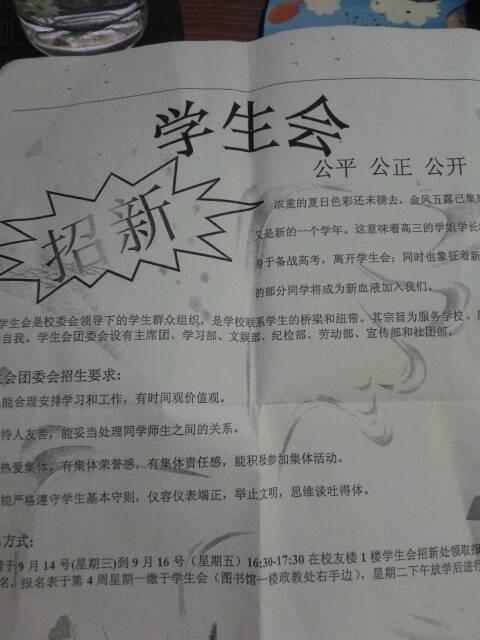 学生会
公平 公正 公开
招新
浓重的夏日色彩还未褪去，金风五露已集
又是新的一个学年。这意味着高三的学姐学长
身于备战高考，离开学生会；同时也象征着新
的部分同学将成为新血液加入我们。
学生会是校委会领导下的学生群众组织，是学校联系学生的桥梁和纽带。其宗旨为服务学校、
自我。学生会团委会设有主席团、学习部、文娱部、纪检部、劳动部、宣传部和社团部。
会团委会招生要求：
能合理安排学习和工作，有时间观价值观。
待人友善，能妥当处理同学师生之间的关系。
热爱集体，有集体荣誉感，有集体责任感，能积极参加集体活动。
能严格遵守学生基本守则，仪容仪表端正，举止文明，思维谈吐得体。
方式：
于9月14号(星期三)到9月16号（星期五）16:30-17:30在校友楼1楼学生会招新处领取报
名，报名表于第4周星期一缴于学生会（图书馆一楼政教处右手边），星期二下午放学后进行